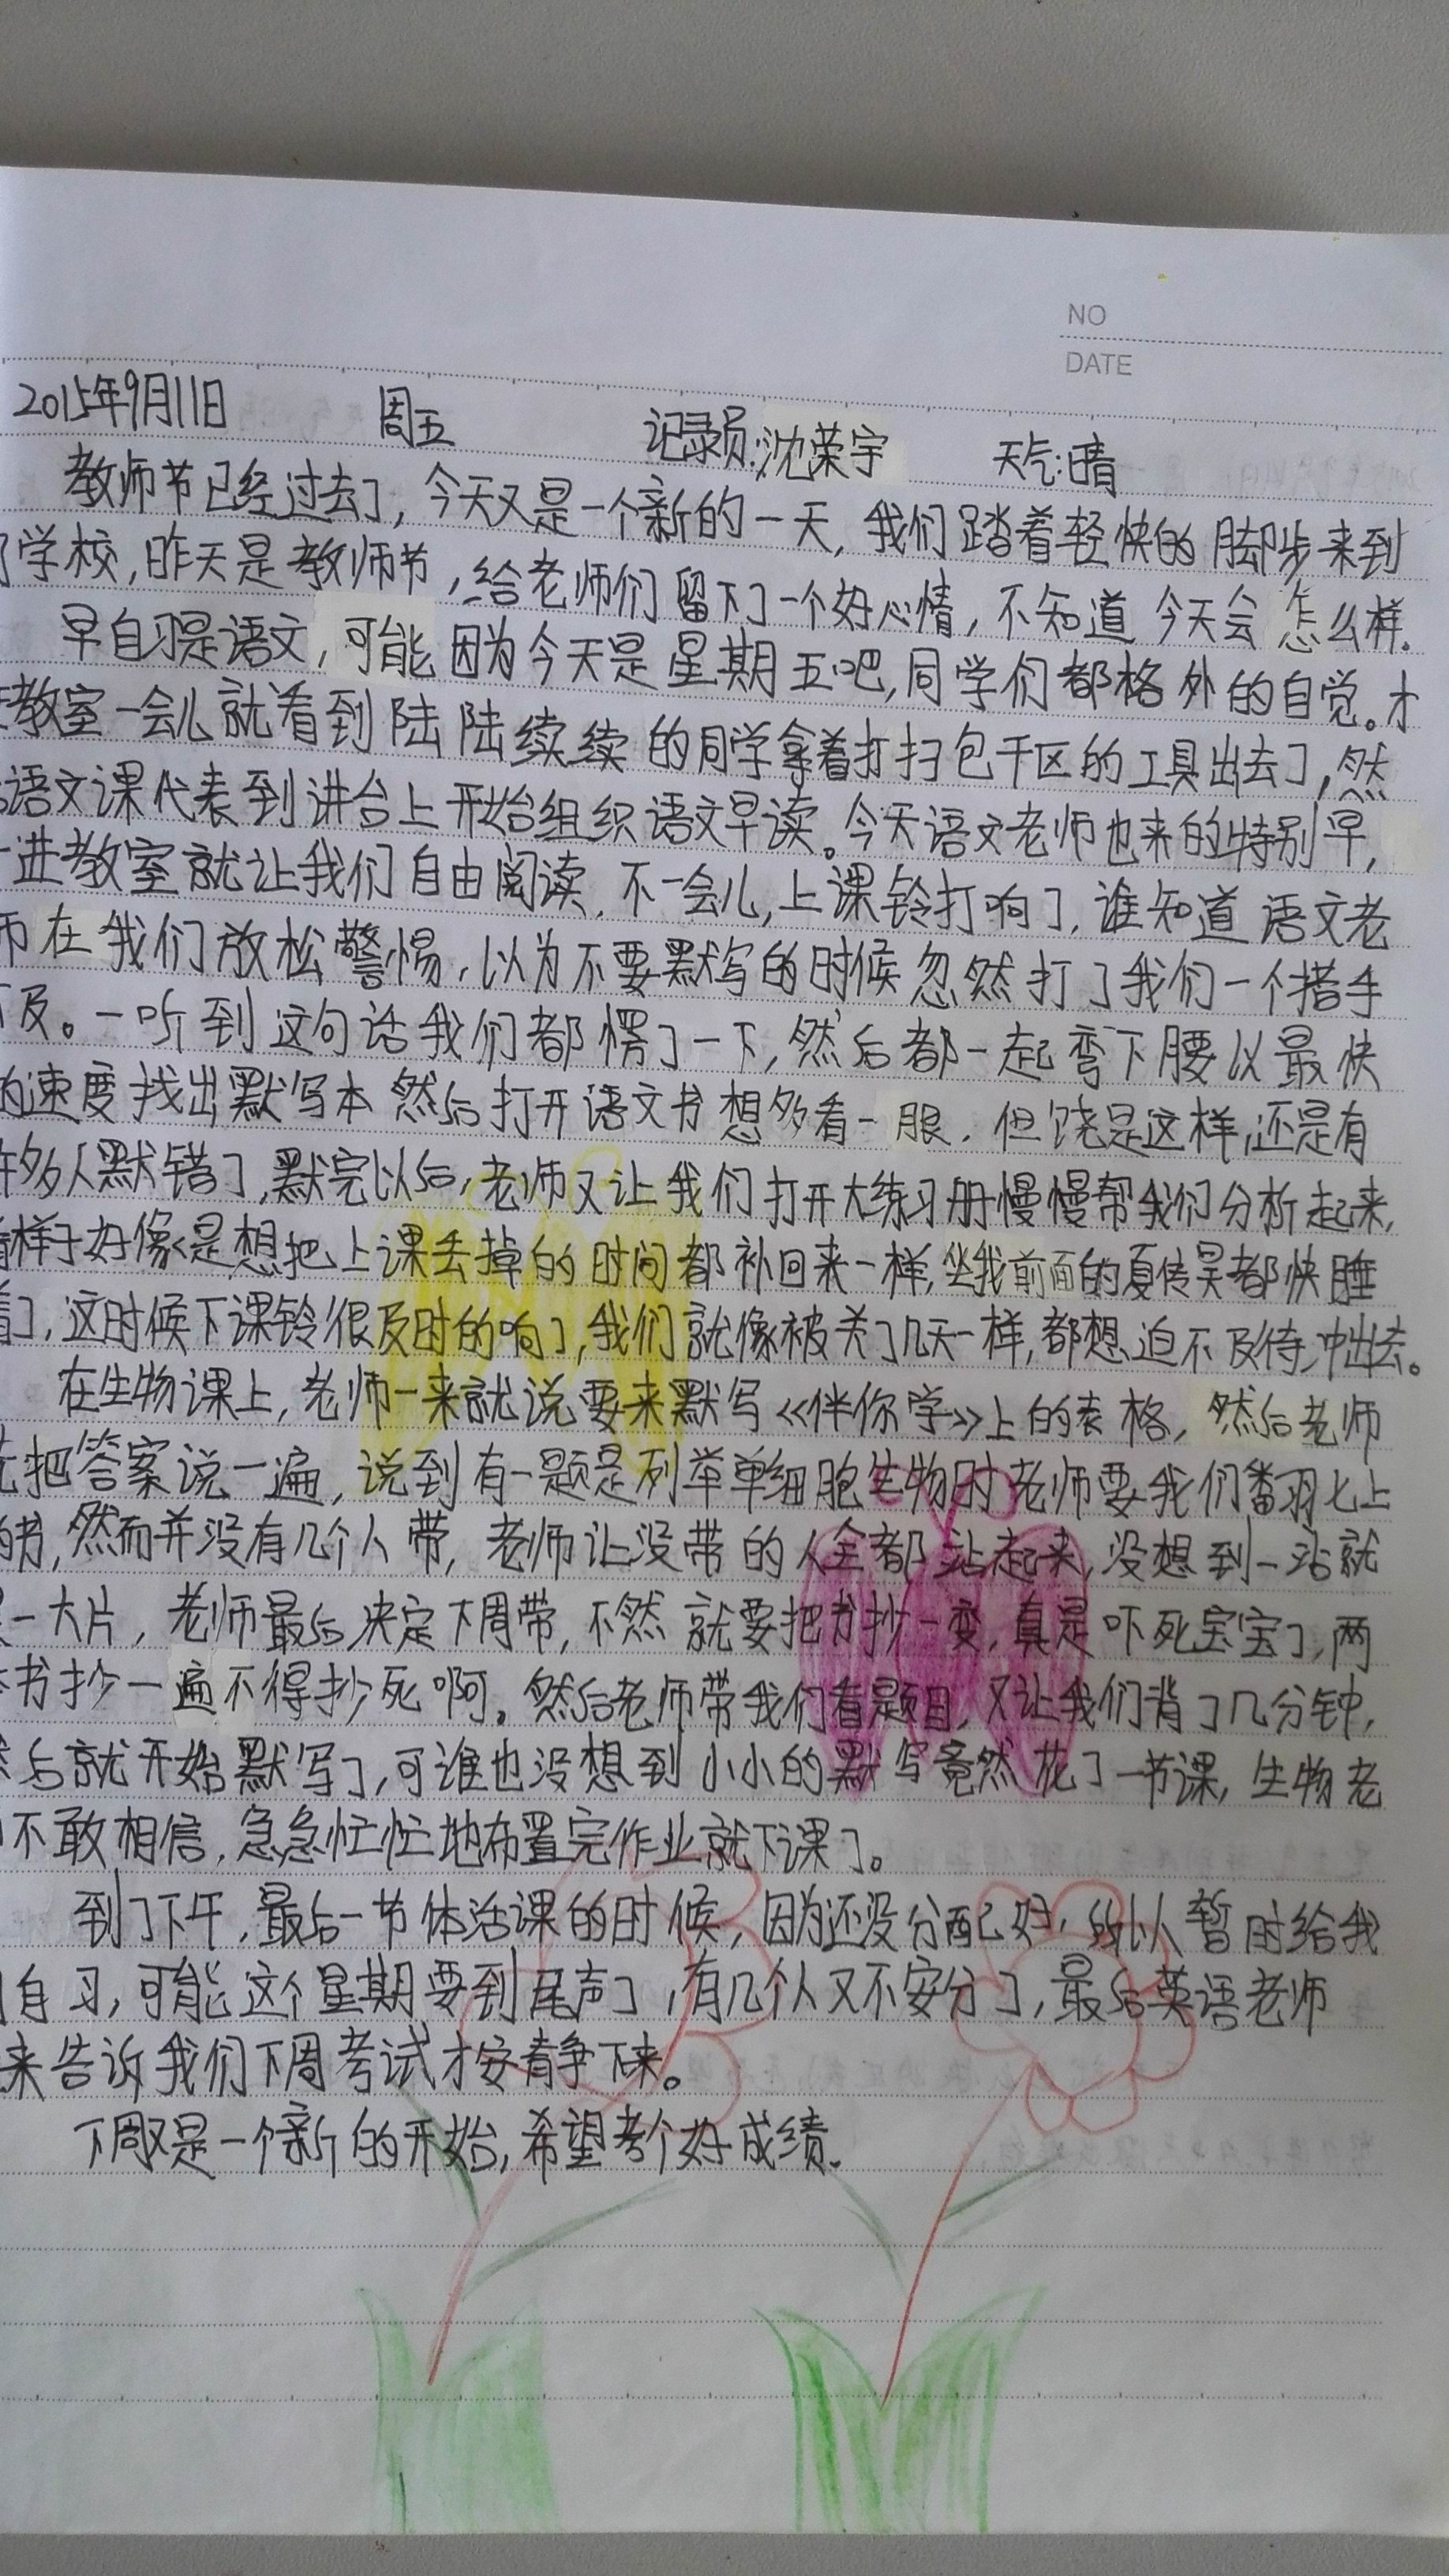 NO
DATE
2015年9月11日 周五 记录员:沈荣宇 天气:晴
教师节已经过去了,今天又是一个新的一天,我们踏着轻快的脚步来到
了学校,昨天是教师节,给老师们留下了一个好心情,不知道今天会怎么样.
早自习是语文,可能因为今天是星期五吧,同学们都格外的自觉。才
教室一会儿就看到陆陆续续的同学拿着打扫包干区的工具出去了,然
语文课代表到讲台上开始组织语文早读。今天语文老师也来的特别早,
一进教室就让我们自由阅读.不一会儿,上课铃打响了,谁知道语文老
师在我们放松警惕,以为不要默写的时候忽然打了我们一个措手
不及。一听到这句话我们都愣了一下,然后都一起弯下腰以最快
的速度找出默写本然后打开语文书想多看一眼.但饶是这样,还是有
许多人默错了,默完以后,老师又让我们打开大练习册慢慢帮我们分析起来,
看样子好像是想把上课丢掉的时间都补回来一样,坐我前面的夏传昊都快睡
着了,这时候下课铃很及时的响了,我们就像被关了几天一样,都想迫不及待冲出去。
在生物课上,老师一来就说要来默写《伴你学》上的表格,然后老师
先把答案说一遍,说到有一题是列举单细胞生物时老师要我们翻七上
的书,然而并没有几个人带,老师让没带的人全都站起来,没想到一站就
是一大片,老师最后决定下周带,不然就要把书抄一变,真是吓死宝宝了,两
本书抄一遍不得抄死啊。然后老师带我们看题目,又让我们背了几分钟,
然后就开始默写了,可谁也没想到小小的默写竟然花了一节课,生物老
不敢相信,急急忙忙地布置完作业就下课了。
到了下午,最后一节体活课的时候,因为还没分配好,所以暂时给我
们自习,可能这个星期要到尾声了,有几个人又不安分了,最后英语老师
来告诉我们下周考试才安静下来。
下周又是一个新的开始,希望考个好成绩.